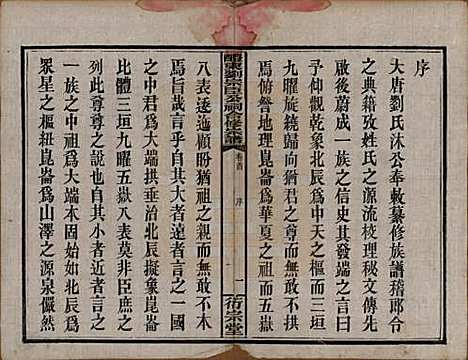 序
大唐劉氏沐公奉敕纂修族譜稽郎令
之典籍攷姓氏之源流校理秘文傳先
啟後蔚成一族之信史其發端之言曰
予仰觀乾象北辰爲中天之樞而三垣
九曜旋繞歸向焉猶一族之祖而八表
焉俯瞥地理崑崙爲華夏之祖而五嶽
醴東劉氏百公祠合修宗譜
卷首
序
一
衍宗堂
八表遂顧盼猶祖之親而無世
焉旨哉乃天地大達者言之一
之中君爲大端拱垂治北辰擬象崑崙
比體三垣九曜五嶽八表莫非臣庶之
列此尊尊之說也自其小者近者言之
一族之中祖爲大端本於一尤如北辰爲
眾星之樞紐崑崙爲山澤之源泉儼然